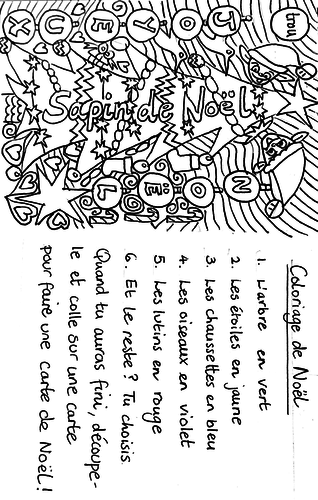 JOYEUX
Sapin de Noël
NOËL
Coloriage de Noël
1. L'arbre en vert
2. Les étoiles en jaune
3. Les chaussettes en bleu
4. Les oiseaux en violet
5. Les lutins en rouge
6. Et le reste? Tu choisis.
Quand tu auras fini, découpe-
le et colle sur une carte
pour faire une carte de Noël!